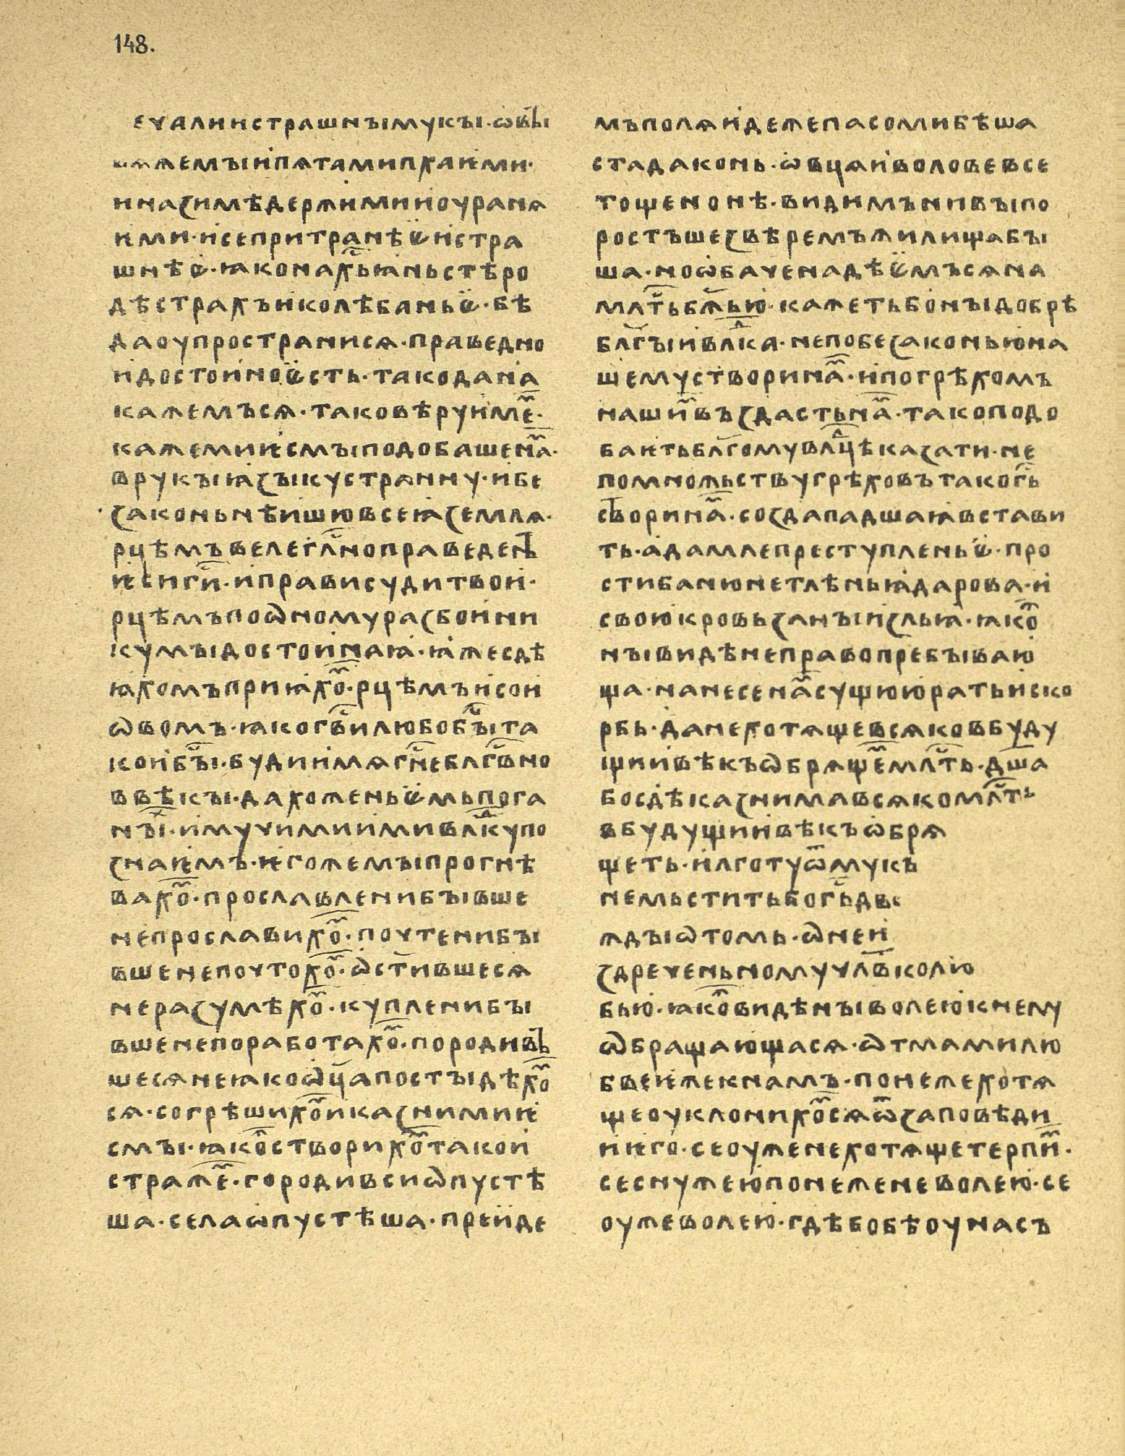 148.
ечалнистрашнъімукъі·ѡ҆въі
жаемъіипѧтамипхаюми·
иназимѣдержимииоуранѧ
ѥми·исепритранѣѥ҆истра
шнѣѥ·ꙗконахрⷭ҇тьꙗньстѣро
дѣстрахъиколѣбаньѥ·бѣ
даоупространисѧ·праведно
идостоиноѥсть·такоданⷶа
кажемъсѧ·таковѣруимеⷮ·
кажемиѥсмъіподобашенаⷨ·
врукъіꙗзъікустранну·ибе
законьнѣишювсеꙗземлѧ·
рцѣмъвелегл҃ноправеденъ
ѥсиги҃·иправисудитвои·
рцѣмъпоѡномуразбоини
кумъідостоинаꙗ·ꙗжесдѣ
ꙗхомъприꙗхоⷨ·рцѣмъисои
ѡвомъ·ꙗкогв҃илюбобъі҃та
коибъі҃·будиимѧгн҃еблгв҃но
ввѣкъі·дахоженьѥмьпога
нъіⷯ·имучимиимивлⷣкупо
знаѥмъ·ѥгожемъіпрогнѣ
вахоⷨ·прославленибъівше
непрославихоⷨ·почтенибъі
вшенепочтохоⷨ·ѡст҃ившесѧ
неразумѣхоⷨ·купленибъі
вшенепоработахоⷨ·породивъ
шесѧнеꙗкоѡц҃апостъідѣхоⷨ
сѧ·согрѣшихоⷨиказнимиѥ
смъі·ꙗкоⷤстворихоⷨтакои
стражеⷨ·городивсиѡпустѣ
ша·селаѡпустѣша·преиде
мъполѧидежепасомибѣша
стадаконь·ѡвцѧиволовевсе
тощенонѣ·видимънивъіпо
ростъшезвѣремъжилищабъі
ша·ноѡбаченадѣѥмъсѧна
млⷭ҇тьбж҃ью·кажетьбонъідобрѣ
блг҃ъіивлⷣка·непобезаконьюна
шемустворинаⷨ·ипогрѣхомъ
нашиⷨвъздастьнаⷨ·такоподо
баѥтьблг҃омувлⷣцѣказати·не
помножьствугрѣховътакогь҃
створинаⷨ·создападшаꙗвстави
ть·адамлепреступленьѥ·про
стибанюнетлѣньꙗдарова·и
своюкровьзанъіизльꙗ·ꙗкоⷤ
нъівидѣнеправопребъіваю
ща·нанесенаⷨсущююратьиско
рбь·данехотѧщевсѧковбуду
щиивѣкъѡбрѧщемⷨмлⷭ҇ть·дш҃а
босдѣказнимавсѧкомлⷭ҇ть
вбудущиивѣкъѡбрѧ
щеть·илготуѿмукъ
немьститьбогъдв
ждъіѡтомь·ѡнеи
здреченьномучлв҃колю
бью·ꙗкоⷤвидѣнъіволеюкнему
ѡбращающасѧ·ѡтмамилю
бвеижекнамъ·понежехотѧ
щеоуклонихоⷨсѧѿзаповѣди
ииго·сеоуженехотѧщетерпиⷨ·
сеснужеюпонеженеволею·се
оужеволею·гдѣбобѣоунасъ